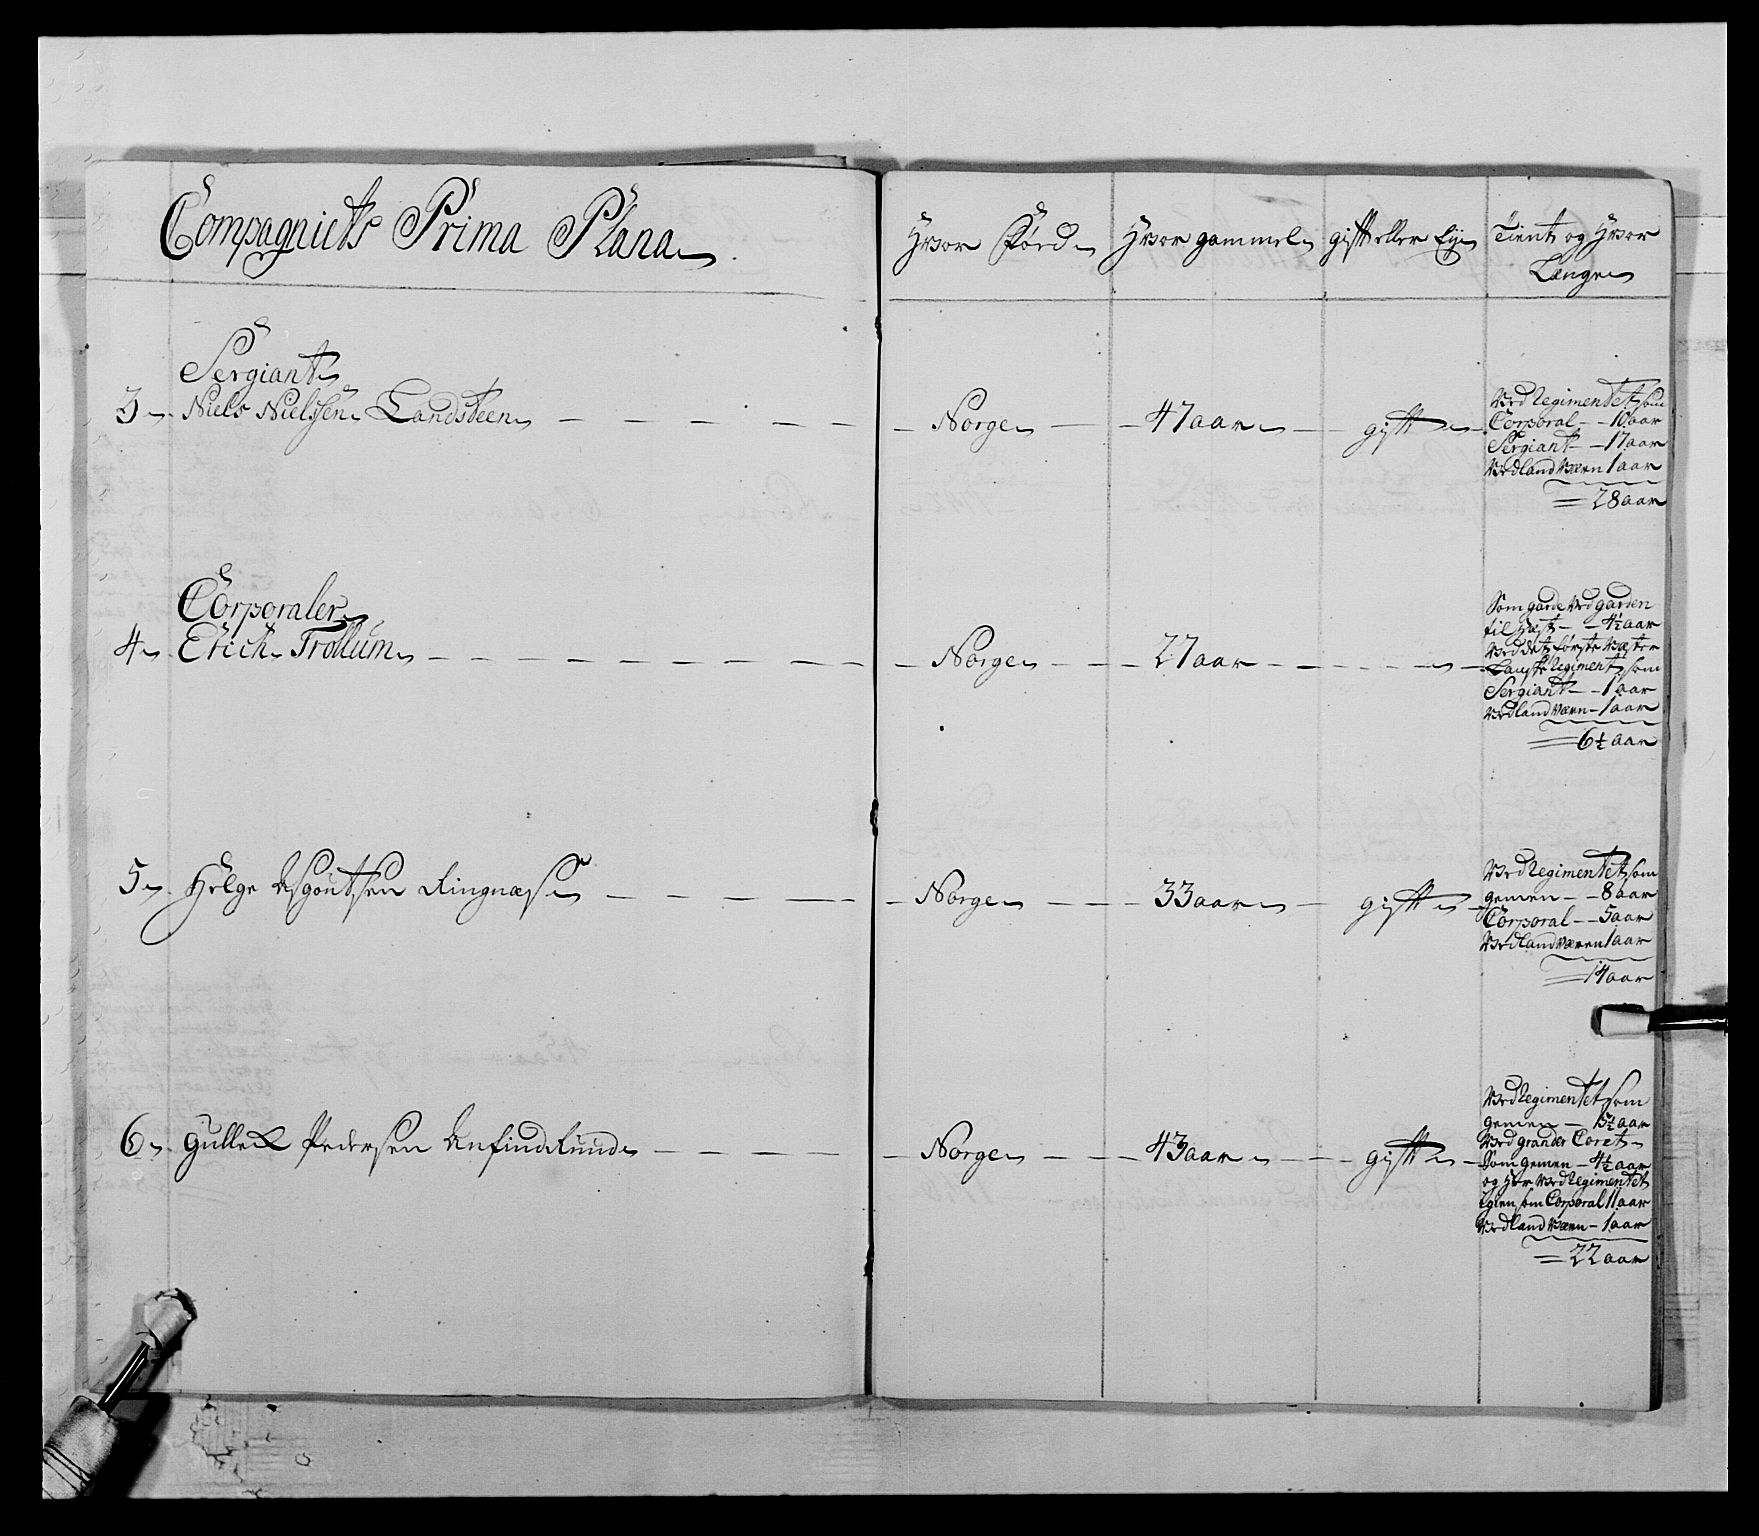 Compagniets Prima Plana
Hvor Föed Hvor gammel gift eller Eij Tient og Hvor
Længe
Sergiant
3 Niels Nielssen Landsteen Norge 47 aar gift
Ved Regimentet som
Corporal 10 aar
Sergiant 17 aar
Ved land Værn 1 aar
28 aar
Corporaler
4 Erich Trollum Norge 27 aar
Som garde Ved garden
til Hest 4½ aar
Ved det første Vester
Lenske Regiment som
Sergiant 1 aar
Ved land Værn 1 aar
6½ aar
5 Helge Asgoutsen Ringnæs Norge 33 aar gift
Ved Regimentet som
gemen 8 aar
Corporal 5 aar
Ved land værn 1 aar
14 aar
6 Gulleck Pedersen Norge 43 aar gift
Ved Regimentet som
gemen 5½ aar
Ved grander Coret
Som gemen 4½ aar
og Her Ved Regimentet
igien som Corporal 11 aar
Ved land Værn 1 aar
22 aar